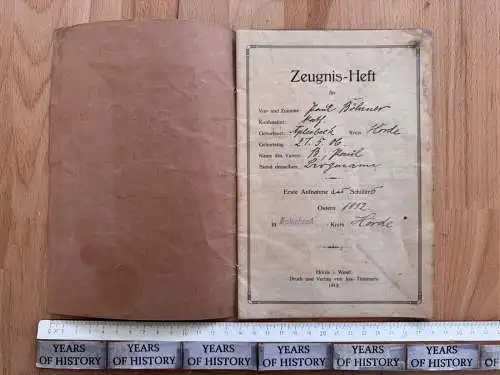 Zeugnis-Heft
für
Vor- und Zuname: Paul Böhmer
Konfession: Kath.
Geburtsort: Aplerbeck Kreis Hörde
Geburtstag: 21. 5. 06.
Name des Vaters: B., Paul
Stand desselben: Bergmann
Erste Aufnahme des Schülers
Ostern 1912
in Kreis Hörde
Hörde i. Westf.
Druck und Verlag von
1912.
YEARS OF HISTORY YEARS OF HISTORY YEARS OF HISTORY YEARS OF HISTORY YEARS OF HISTORY YEARS OF HISTORY